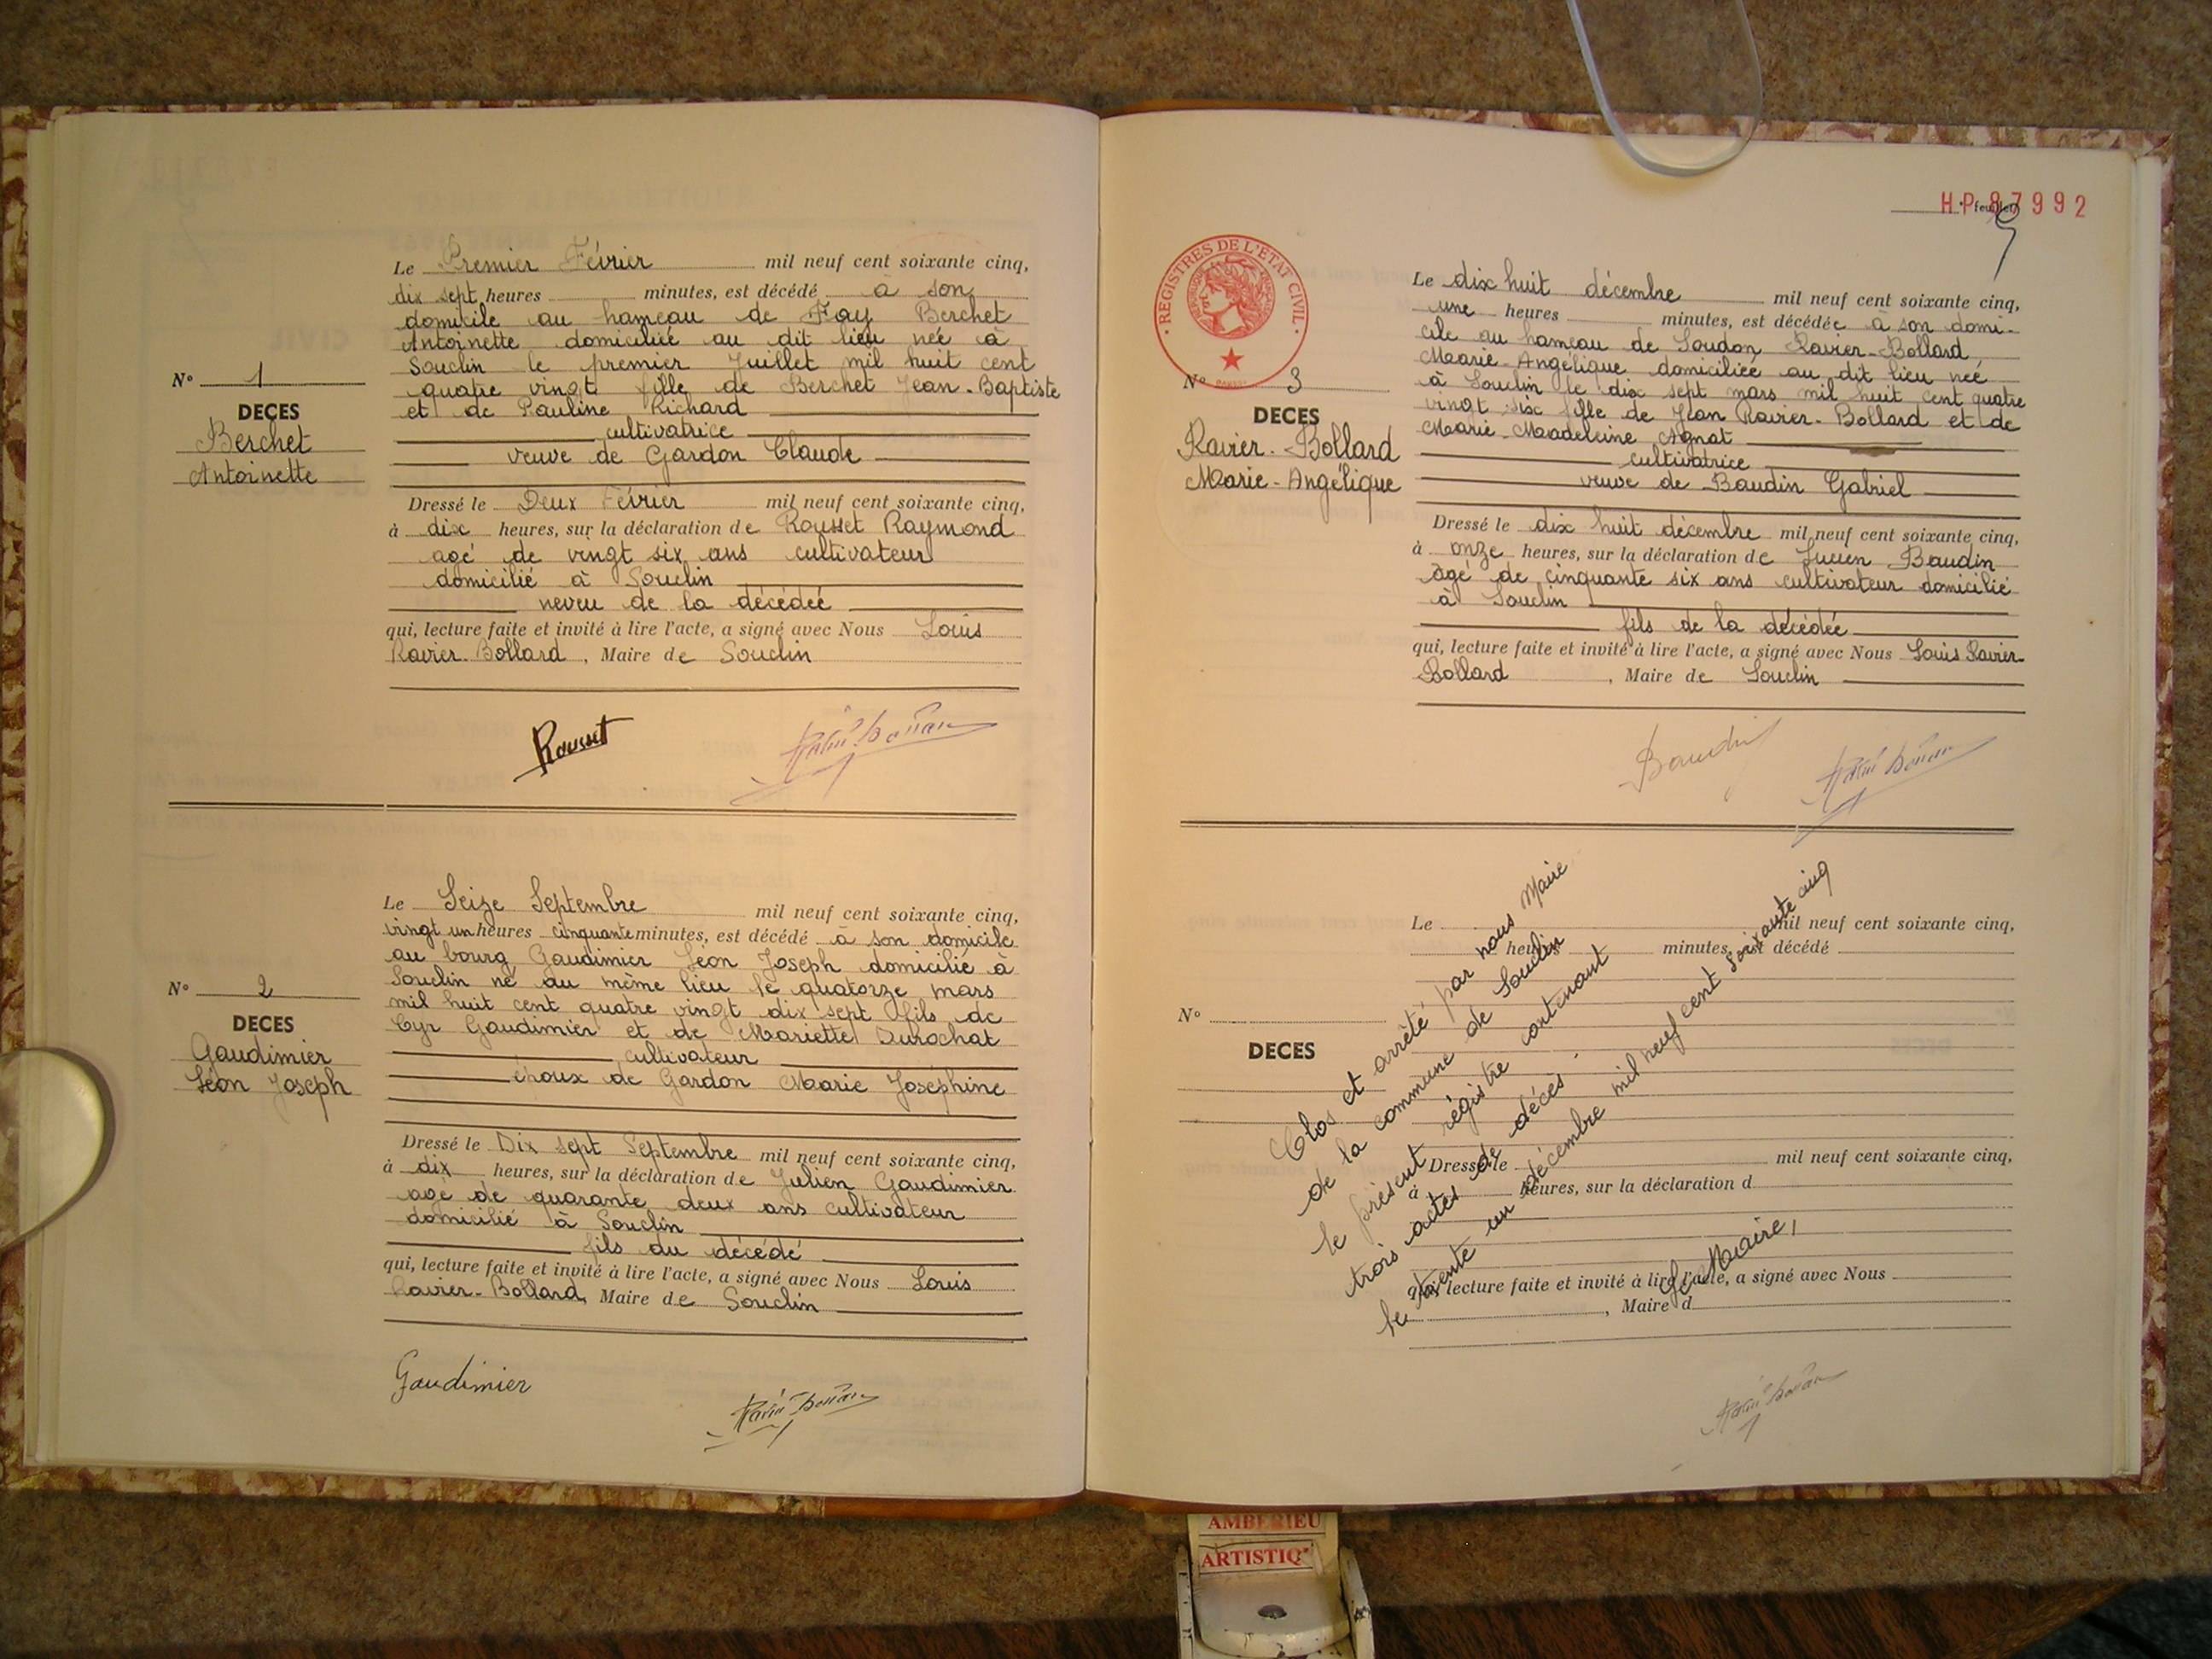 Le Premier Février mil neuf cent soixante cinq,
dix sept heures minutes, est décédé à son
domicile au hameau de Fay Berchet
Antoinette domiciliée au dit lieu née à
Souclin le premier Juillet mil huit cent
quatre vingt fille de Berchet Jean-Baptiste
et de Pauline Richard
cultivatrice
veuve de Gardon Claude
N° 1
DECES
Berchet
Antoinette
Dressé le Deux Février mil neuf cent soixante cinq,
à dix heures, sur la déclaration de Rousset Raymond
agé de vingt six ans cultivateur
domicilié à Souclin
neveu de la décédée
qui, lecture faite et invité à lire l'acte, a signé avec Nous Louis
Ravier-Bollard, Maire de Souclin
Rousset
Le Seize Septembre mil neuf cent soixante cinq,
vingt un heures cinquante minutes, est décédé à son domicile
au bourg Gaudimier Léon Joseph domicilié à
Souclin né au même lieu le quatorze mars
mil huit cent quatre vingt dix sept fils de
Cyr Gaudimier et de Mariette Durochat
cultivateur
époux de Gardon Marie Joséphine
N° 2
DECES
Gaudimier
Léon Joseph
Dressé le Dix sept Septembre mil neuf cent soixante cinq,
à dix heures, sur la déclaration de Julien Gaudimier
agé de quarante deux ans cultivateur
domicilié à Souclin
fils du décédé
qui, lecture faite et invité à lire l'acte, a signé avec Nous Louis
Ravier-Bollard, Maire de Souclin
Gaudimier
HP 87992
feuillet
REGISTRES DE L'ETAT CIVIL
Le dix huit décembre mil neuf cent soixante cinq,
une heures minutes, est décédée à son domi-
cile au hameau de Soudon Ravier-Bollard
Marie-Angélique domiciliée au dit lieu née
à Souclin le dix sept mars mil huit cent quatre
vingt six fille de Jean Ravier-Bollard et de
Marie-Madeleine Agnat
cultivatrice
veuve de Baudin Gabriel
N° 3
DECES
Ravier-Bollard
Marie-Angélique
Dressé le dix huit décembre mil neuf cent soixante cinq,
à onze heures, sur la déclaration de Lucien Baudin
agé de cinquante six ans cultivateur domicilié
à Souclin
fils de la décédée
qui, lecture faite et invité à lire l'acte, a signé avec Nous Louis Ravier-
Bollard, Maire de Souclin
Baudin
Le mil neuf cent soixante cinq,
heures minutes, est décédé
N°
DECES
Dressé le mil neuf cent soixante cinq,
à heures, sur la déclaration d
qui, lecture faite et invité à lire l'acte, a signé avec Nous
, Maire d
Clos et arrêté par nous Maire
de la commune de Souclin
le présent régistre contenant
trois actes de décès.
le trente un décembre mil neuf cent soixante cinq
Le Maire,
AMBERIEU
ARTISTIQ